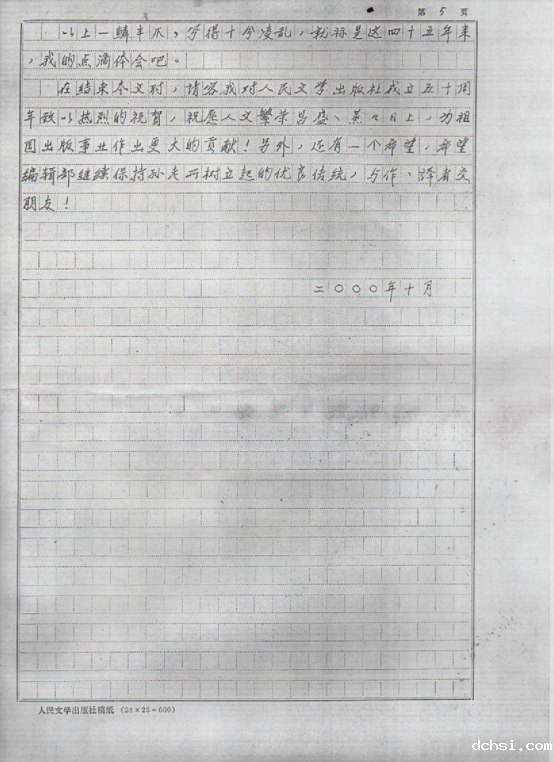 第 5 页
以上一鳞半爪，写得十分凌乱，就称是这四十五年来
，我的点滴体会吧。
在结束本文时，请容我对人民文学出版社成立五十周
年致以热烈的祝贺，祝愿人文繁荣昌盛、蒸々日上，为祖
国出版事业作出更大的贡献！另外，还有一个希望，希望
编辑部继续保持孙老所树立起的优良传统，与作、译者交
朋友！
二〇〇〇年十月
人民文学出版社稿纸 (24×25=600)
dchsi.com